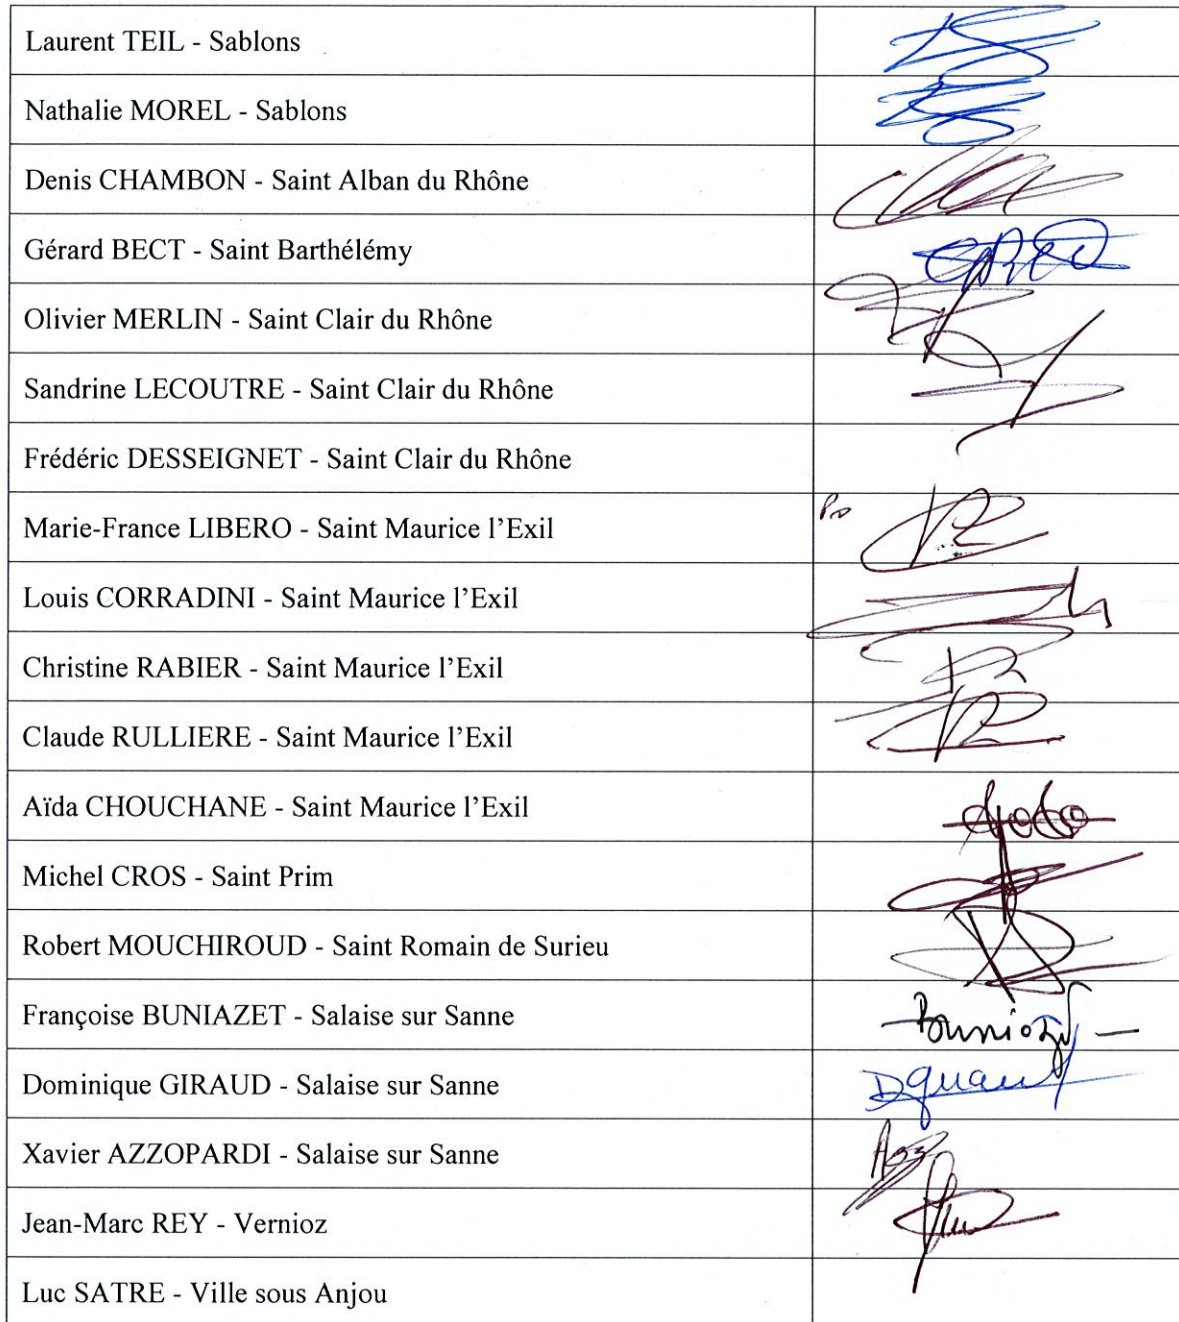 Laurent TEIL - Sablons
Nathalie MOREL - Sablons
Denis CHAMBON - Saint Alban du Rhône
Gérard BECT - Saint Barthélémy
Olivier MERLIN - Saint Clair du Rhône
Sandrine LECOUTRE - Saint Clair du Rhône
Frédéric DESSEIGNET - Saint Clair du Rhône
Marie-France LIBERO - Saint Maurice l’Exil
Louis CORRADINI - Saint Maurice l’Exil
Christine RABIER - Saint Maurice l’Exil
Claude RULLIERE - Saint Maurice l’Exil
Aïda CHOUCHANE - Saint Maurice l’Exil
Michel CROS - Saint Prim
Robert MOUCHIROUD - Saint Romain de Surieu
Françoise BUNIAZET - Salaise sur Sanne
Dominique GIRAUD - Salaise sur Sanne
Xavier AZZOPARDI - Salaise sur Sanne
Jean-Marc REY - Vernioz
Luc SATRE - Ville sous Anjou